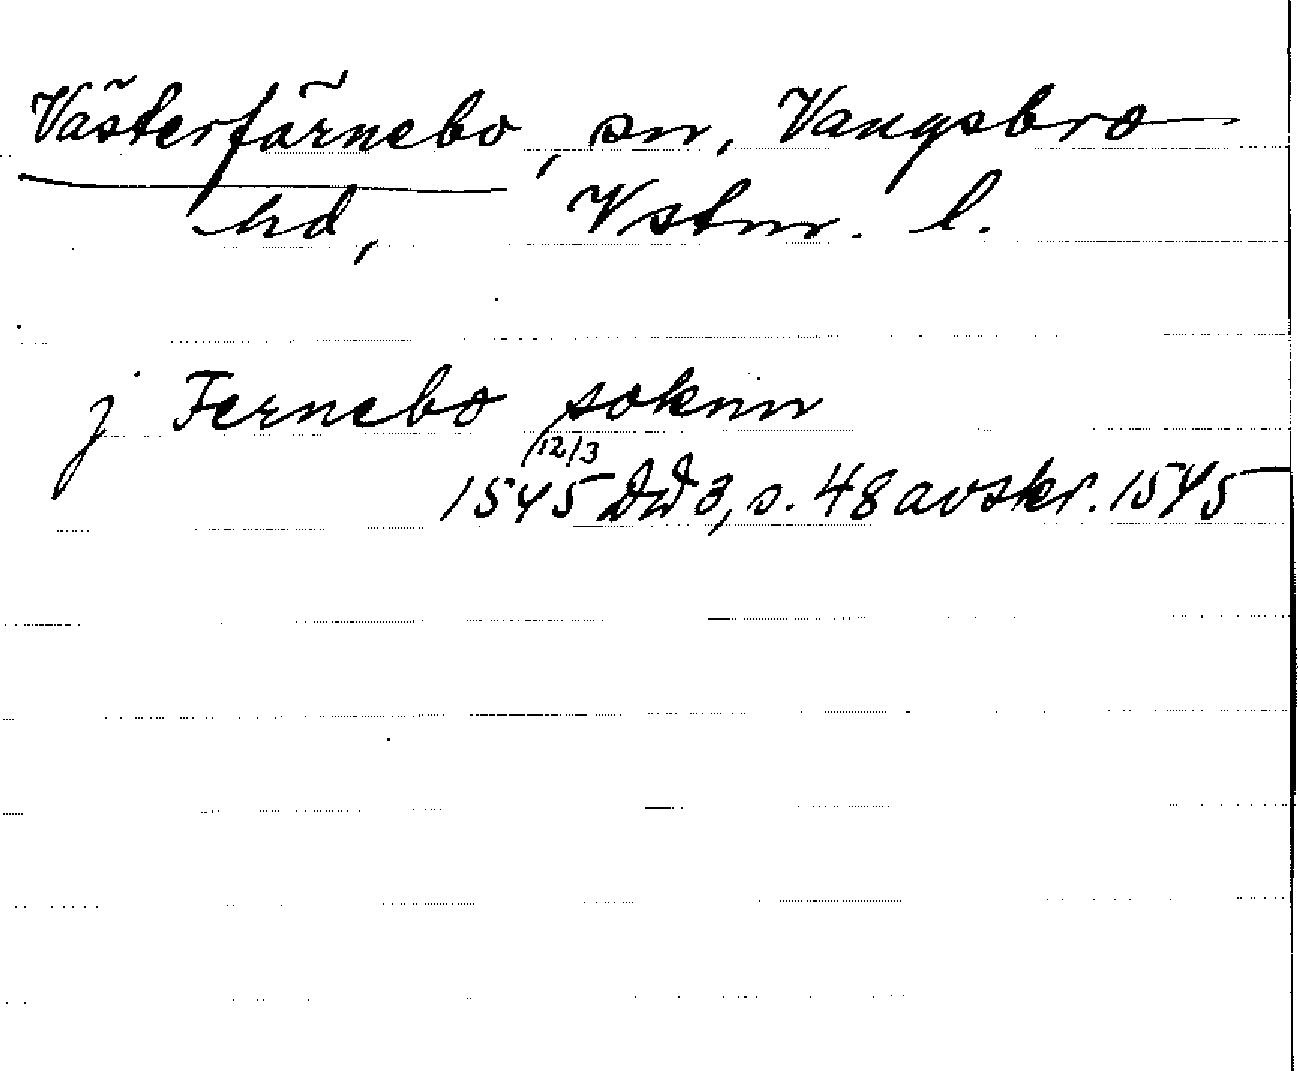 Västerfärnebo, sn, Vangsbro
hd, Vstm. l.
j Fernebo soknn
12/3
1545 DD 3, s. 48 avskr. 1545